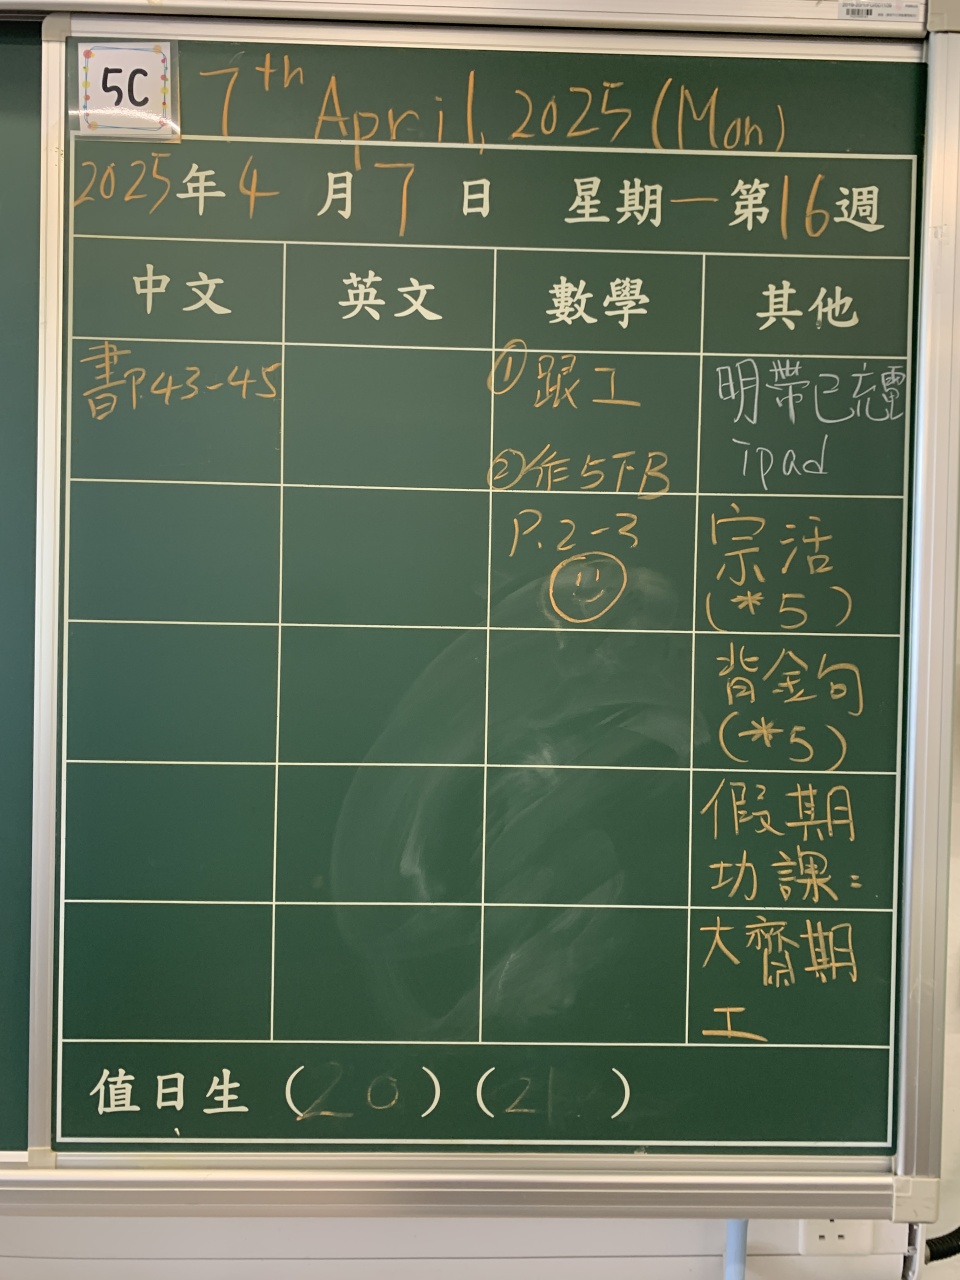 5C
7th April, 2025 (Mon)
2025年4月7日 星期一第16週
中文 英文 數學 其他
書P.43-45
①跟工
②作5下B
P.2-3
明帶已充電
ipad
宗活
(*5)
背金句
(*5)
假期
功課:
大齋期
工
值日生 (20) (21)